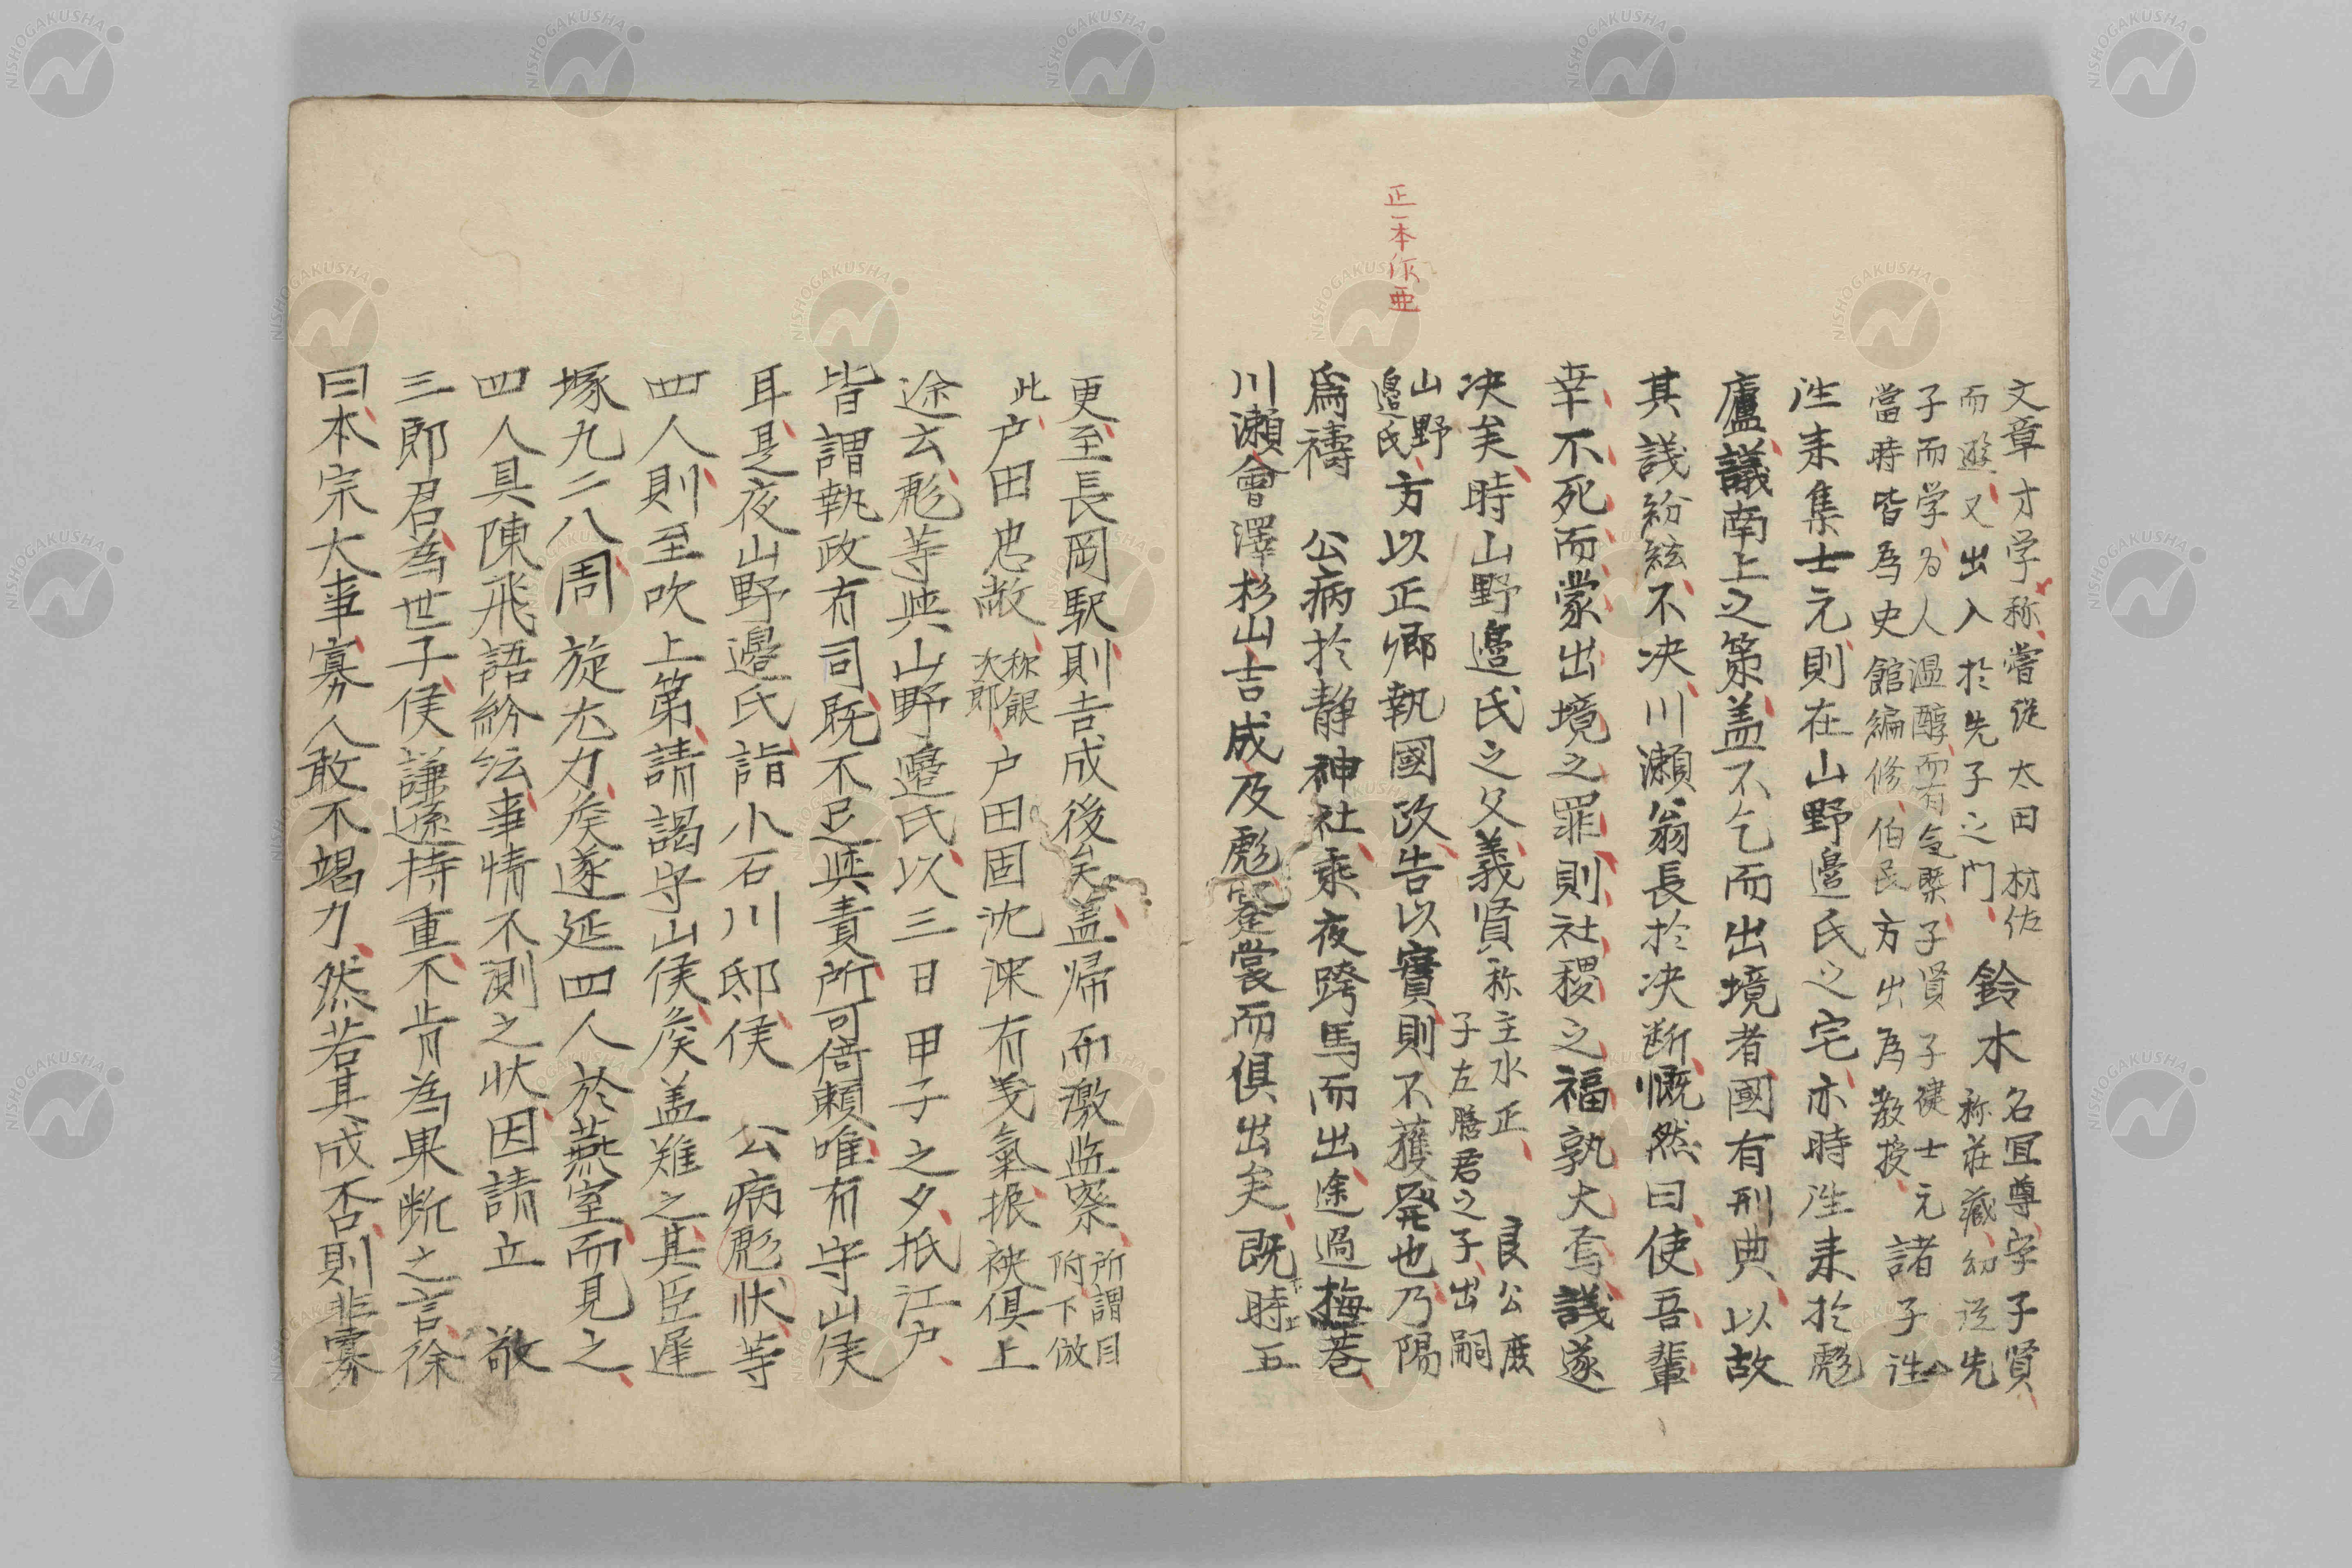 文章才学称嘗従太田材佐
而遊又出入於先子之門
鈴木
名宜尊字子賢
称荘蔵幼従先
子而学為人温醇而有気槩子賢子健士元
當時皆為史館編修伯民方出為教授
諸子徃
徃来集士元則在山野邉氏之宅亦時徃来於彪
廬議南上之策盖不乞而出境者國有刑典以故
其議紛紜不决川瀬翁長於决断慨然曰使吾輩
幸不死而蒙出境之罪則社稷之福孰大焉議遂
决矣時山野邉氏之父義賢
称主水正
良公庶
子左膳君之子出嗣
山野
邉氏
方以正卿執國政告以實則不獲発也乃陽
正一本作亜
為禱 公病於静神社乘夜跨馬而出途過梅巷
川瀬會澤杉山吉成及彪蹇裳而倶出矣既時五
更至長岡駅則吉成後矣盖帰而激監察
所謂目
附下倣
此
戸田忠敞
称銀
次郎
戸田固沈深有義氣振袂倶上
途云彪等與山野邉氏以三日甲子之夕抵江戸
皆謂執政有司既不足與責所可倚頼唯有守山侯
耳是夜山野邉氏詣小石川邸侯 公病彪状等
四人則至吹上第請謁守山侯矦盖難之其臣遅
塚九二八周旋尤力矦遂延四人於燕室而見之
四人具陳飛語紛紜事情不測之状因請立 敬
三郎君為世子侯謙遜持重不肯為果断之言徐
曰本宗大事寡人敢不竭力然若其成否則非寡